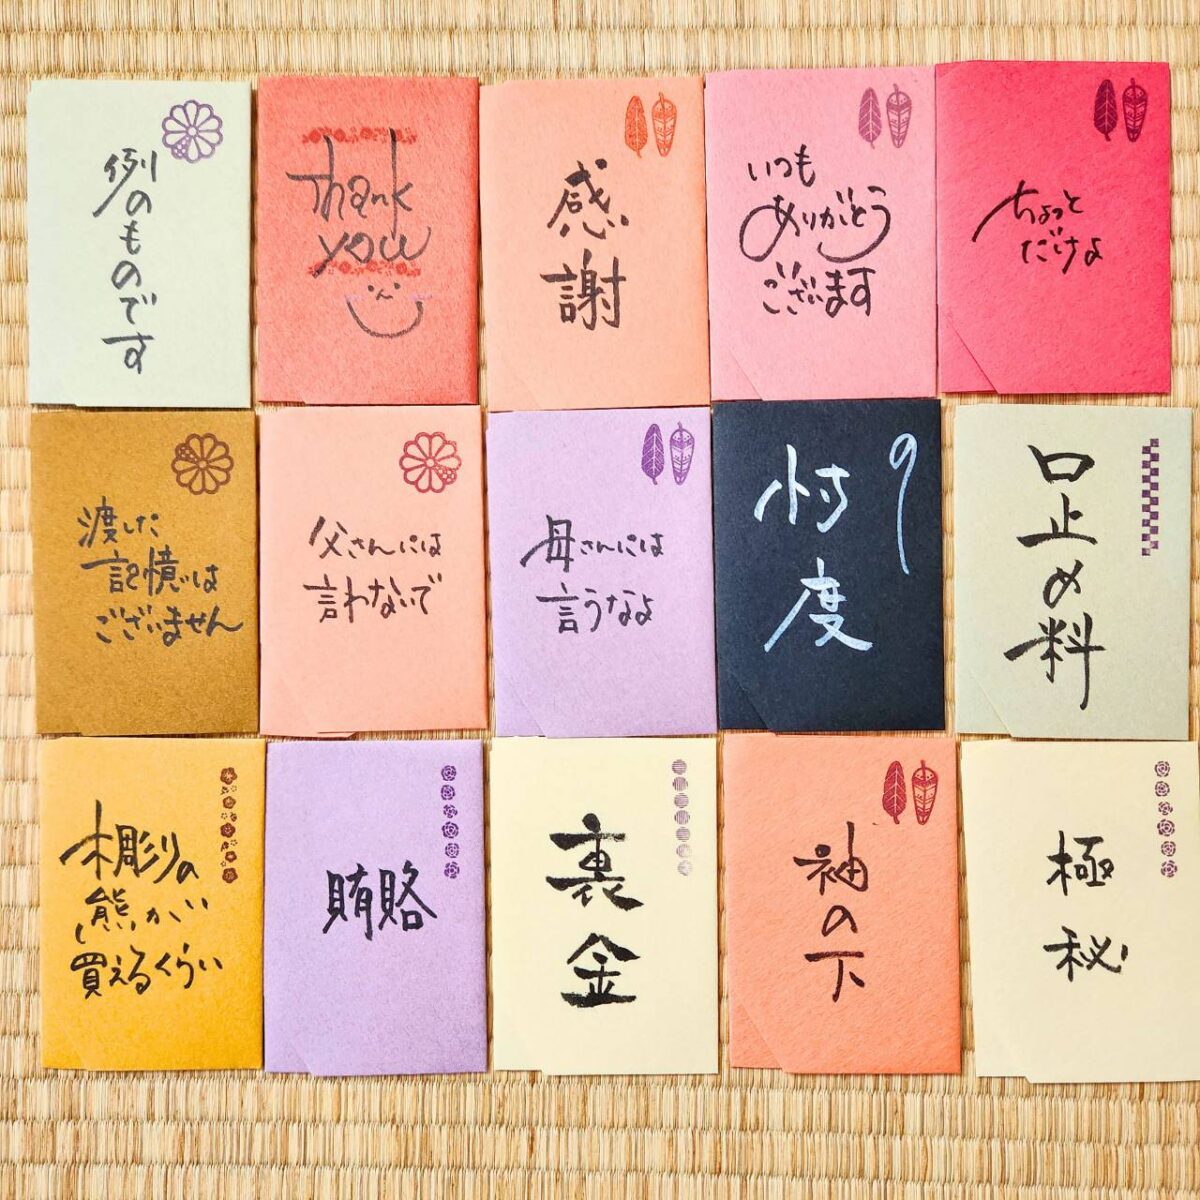 例のものです
Thank
you
感
謝
いつも
ありがとう
ございます
ちょっと
だけよ
渡した
記憶は
ございません
父さんには
言わないで
母さんには
言うなよ
忖度
口止め料
木彫りの
熊が
買えるくらい
賄賂
裏金
袖の下
極秘